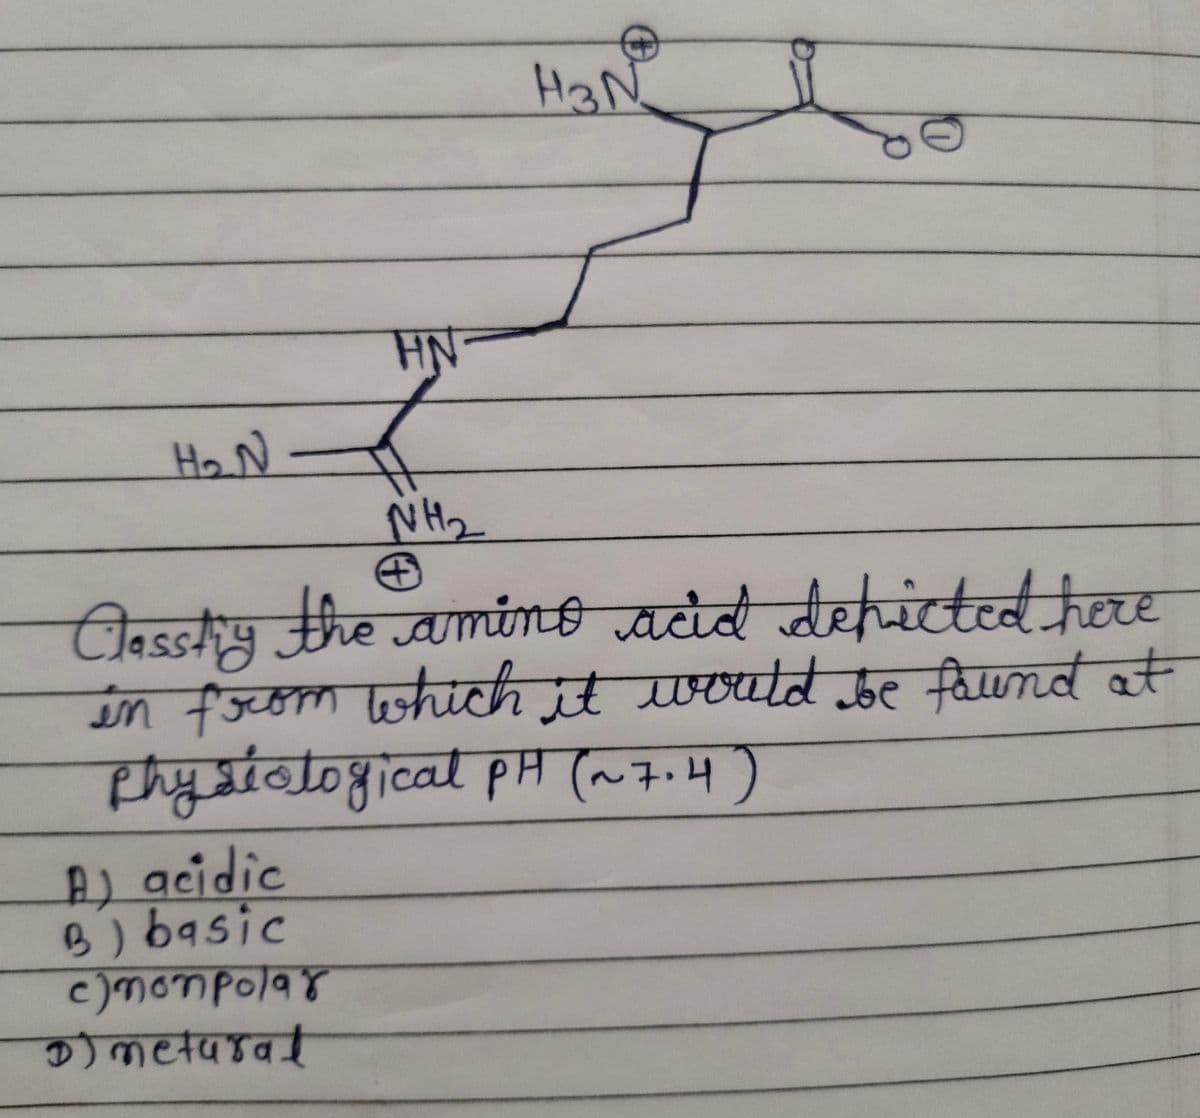 H3N
⊕
O
O
⊖
HN
H2N
NH2
⊕
Classtiy the amino acid dehicted here
in from which it would be faund at
physiological pH (~7.4)
A) acidic
B) basic
c) nonpolar
D) netural